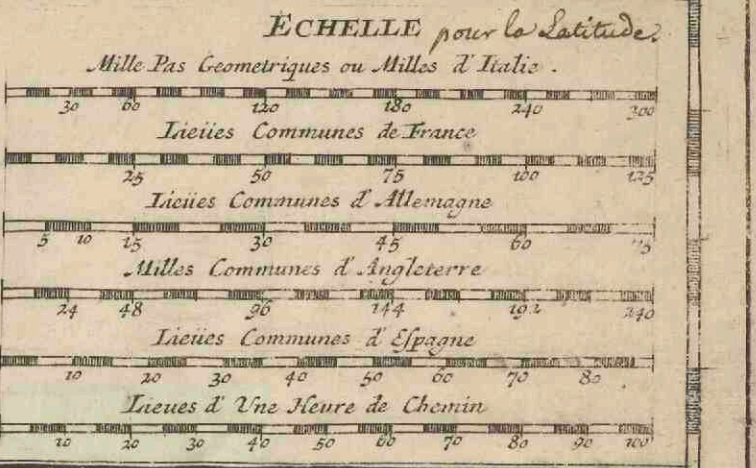 ECHELLE pour la Latitude.
Mille Pas Geometriques ou Milles d'Italie.
30 60 120 180 240 300
Lieües Communes de France
25 50 75 100 125
Lieües Communes d'Allemagne
5 10 15 30 45 60 75
Milles Communes d'Angleterre
24 48 96 144 192 240
Lieües Communes d'Espagne
10 20 30 40 50 60 70 80
Lieues d'Une Heure de Chemin
10 20 30 40 50 60 70 80 90 100